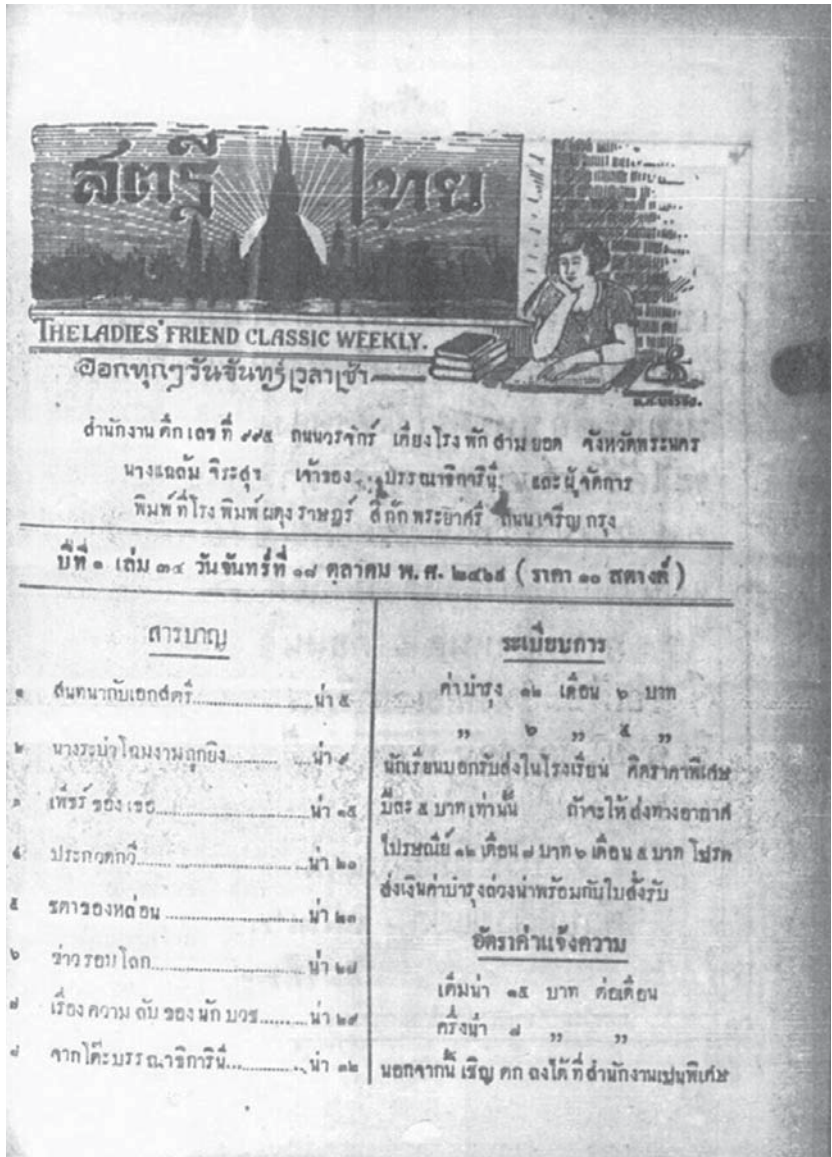 สตรีไทย
THE LADIES' FRIEND CLASSIC WEEKLY.
ออกทุกๆวันจันทร์เวลาเช้า
สำนักงาน ตึก เลข ที่ ๙๙๕ ถนนวรจักร์ เคียงโรงพักสามยอด จังหวัดพระนคร
นางแฉล้ม จิระสุข เจ้าของ บรรณาธิการินี และ ผู้จัดการ
พิมพ์ที่โรงพิมพ์ผดุงราษฎร์ สี่กั๊กพระยาศรี ถนนเจริญกรุง
ปีที่ ๑ เล่ม ๓๔ วันจันทร์ที่ ๑๘ ตุลาคม พ.ศ. ๒๔๖๙ ( ราคา ๑๐ สตางค์ )
สารบาญ
๑ สนทนากับเอกสตรี น่า ๕
๒ นางระบำโฉมงามถูกยิง น่า ๙
๓ เพ็ชร์ของเธอ น่า ๑๕
๔ ประกวดกวี น่า ๒๑
๕ ชตาของหล่อน น่า ๒๓
๖ ข่าวรอบโลก น่า ๒๘
๗ เรื่องความลับของนักบวช น่า ๒๙
๘ จากโต๊ะบรรณาธิการินี น่า ๓๒
ระเบียบการ
ค่าบำรุง ๑๒ เดือน ๖ บาท
„ ๖ „ ๔ „
นักเรียนบอกรับส่งในโรงเรียน คิดราคาพิเศษ
ปีละ ๕ บาทเท่านั้น ถ้าจะให้ส่งทางอากาศ
ไปรษณีย์ ๑๒ เดือน ๘ บาท ๖ เดือน ๕ บาท โปรด
ส่งเงินค่าบำรุงล่วงน่าพร้อมกับใบสั่งรับ
อัตราค่าแจ้งความ
เต็มน่า ๑๕ บาท ต่อเดือน
ครึ่งน่า ๘ „ „
นอกจากนี้ เชิญ ตก ลงได้ ที่ สำนักงานเปนพิเศษ